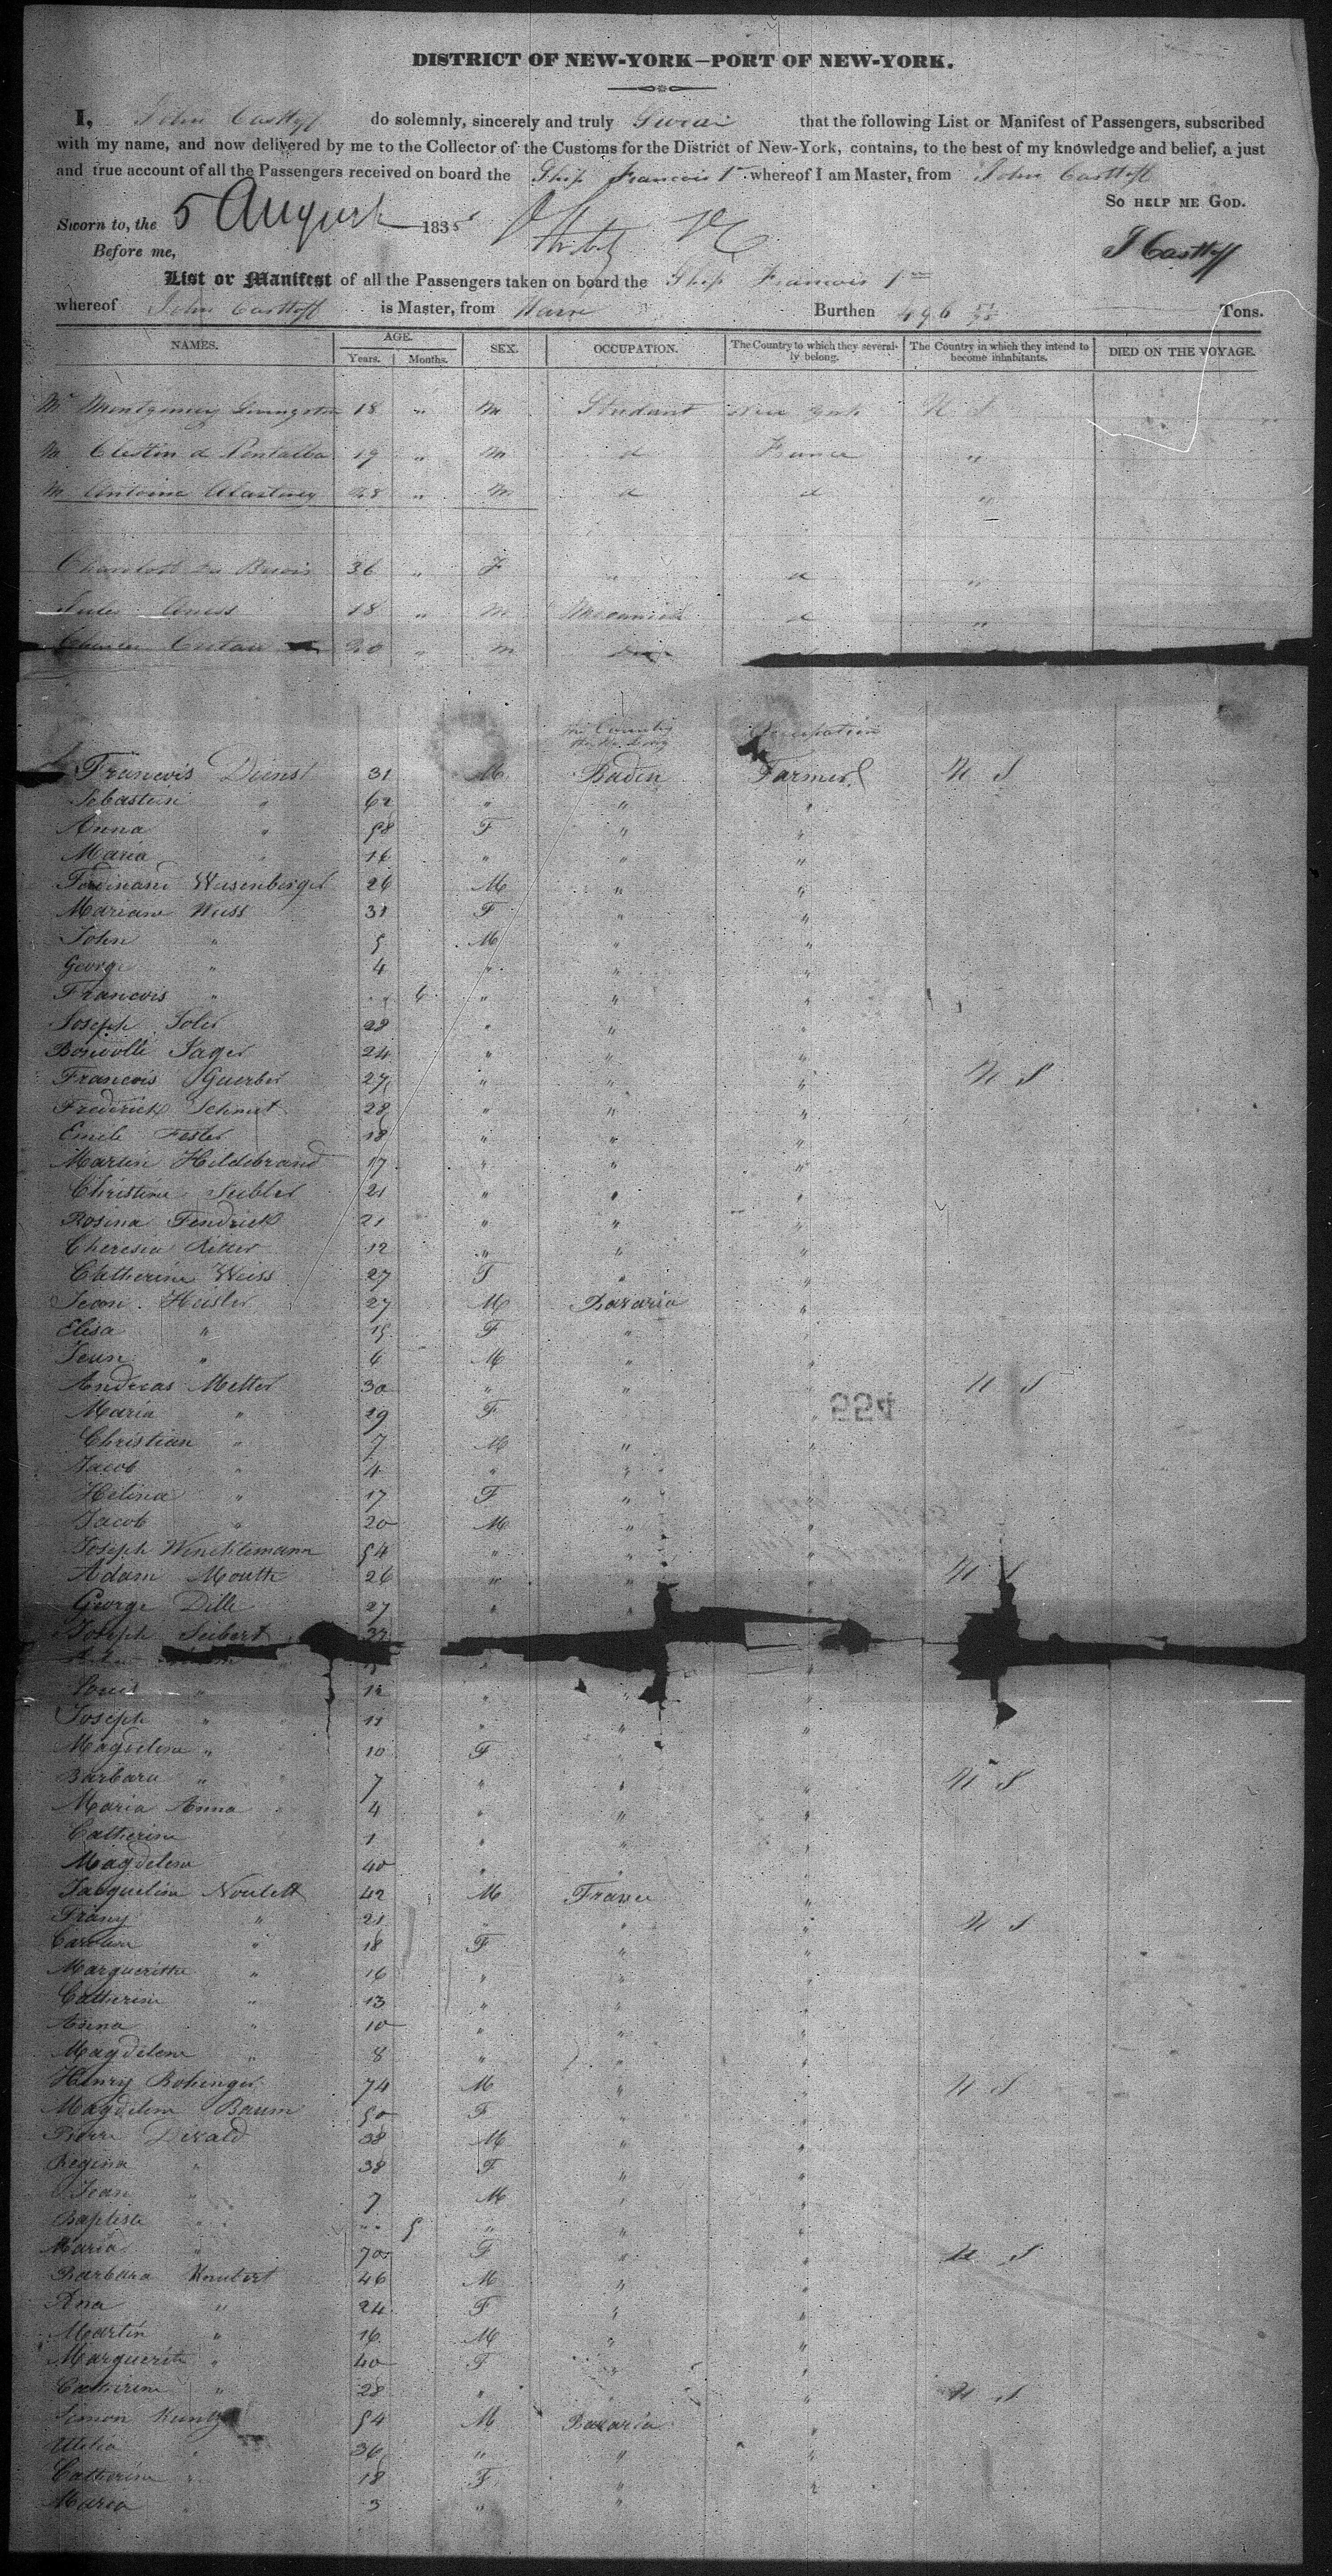 DISTRICT OF NEW-YORK—PORT OF NEW-YORK.
I, John Casttoff do solemnly, sincerely and truly Swear that the following List or Manifest of Passengers, subscribed
with my name, and now delivered by me to the Collector of the Customs for the District of New-York, contains, to the best of my knowledge and belief, a just
and true account of all the Passengers received on board the Ship Francois 1er whereof I am Master, from John Casttoff
So help me God.
Sworn to, the 5 August 1835
J Casttoff
Before me,
List or Manifest of all the Passengers taken on board the Ship Francois 1er
whereof John Casttoff is Master, from Havre Burthen 496 Tons.
NAMES. AGE. SEX. OCCUPATION. The Country to which they severally belong. The Country in which they intend to become inhabitants. DIED ON THE VOYAGE.
Years. Months.
Mr Montgomery Livingston 18 " M Student New York U S
M Celestin d Pontalba 19 " M d France "
M Antoine 28 " M d d "
36 " F " d "
Jules 18 " M Mecanick d "
20 " M
the Country Occupation
they belong
Francois Dienst 31 M Baden Farmer U S
Sebastien " 62 " " "
Anna " 58 F " "
Maria " 16 " " "
Ferdinand Wusenberger 26 M " "
Mariane Wuss 31 F " "
John " 5 M " "
George " 4 " " "
Francois " " 6 " " "
Joseph Soler 28 " " "
Sager 24 " " "
Francois Guerber 27 " " " U S
Frederick Schmit 28 " " "
Emele Fester 18 " " "
Martin Hildebrand 17 " " "
Christine Seibler 21 " " "
Rosina Fendrick 21 " " "
Theresia Ritter 12 " " "
Catherine Weiss 27 F " "
Jean Heisler 27 M Bavaria "
Elisa " 15 F " "
Jean " 6 M " "
Andreas Metter 30 " " " U S
Maria " 29 F "
994
Christian " 7 M " "
Jacob " 4 " "
Helina " 17 F " "
Jacob " 20 M " "
Joseph Wincklemann 54 " " "
Adam Mouth 26 " " " U S
George Dille 27 " " "
Joseph Seibert 37
Louis " 12 " " "
Joseph " 11 " " "
Magdelena " 10 F "
Barbara " 7 " " " U S
Maria Anna " 4 " " "
Catherine 1 " " "
Magdelena 40 " " "
Jacqueline Noulett 42 M France "
Frany " 21 " " " U S
Caroline " 18 F " "
Margueritta " 16 " " "
Catherine " 13 " " "
Anna " 10 " " "
Magdelena " 8 " " "
Henry Bohinger 74 M " " U S
Magdelena Baum 50 F " "
Pierre Divald 38 M " "
Regina " 38 F " "
Jean " 7 M " "
Baptiste " " 5 " " "
Maria " 70 F " " U S
Barbara Humbert 46 M " "
Ana " 24 F " "
Martin " 16 M " "
Marguerite " 40 F " "
Catherine " 28 " " " U S
Simon Kuntz 54 M Bavaria "
36 " " "
Catherine " 18 F " "
Maria " 3 " "